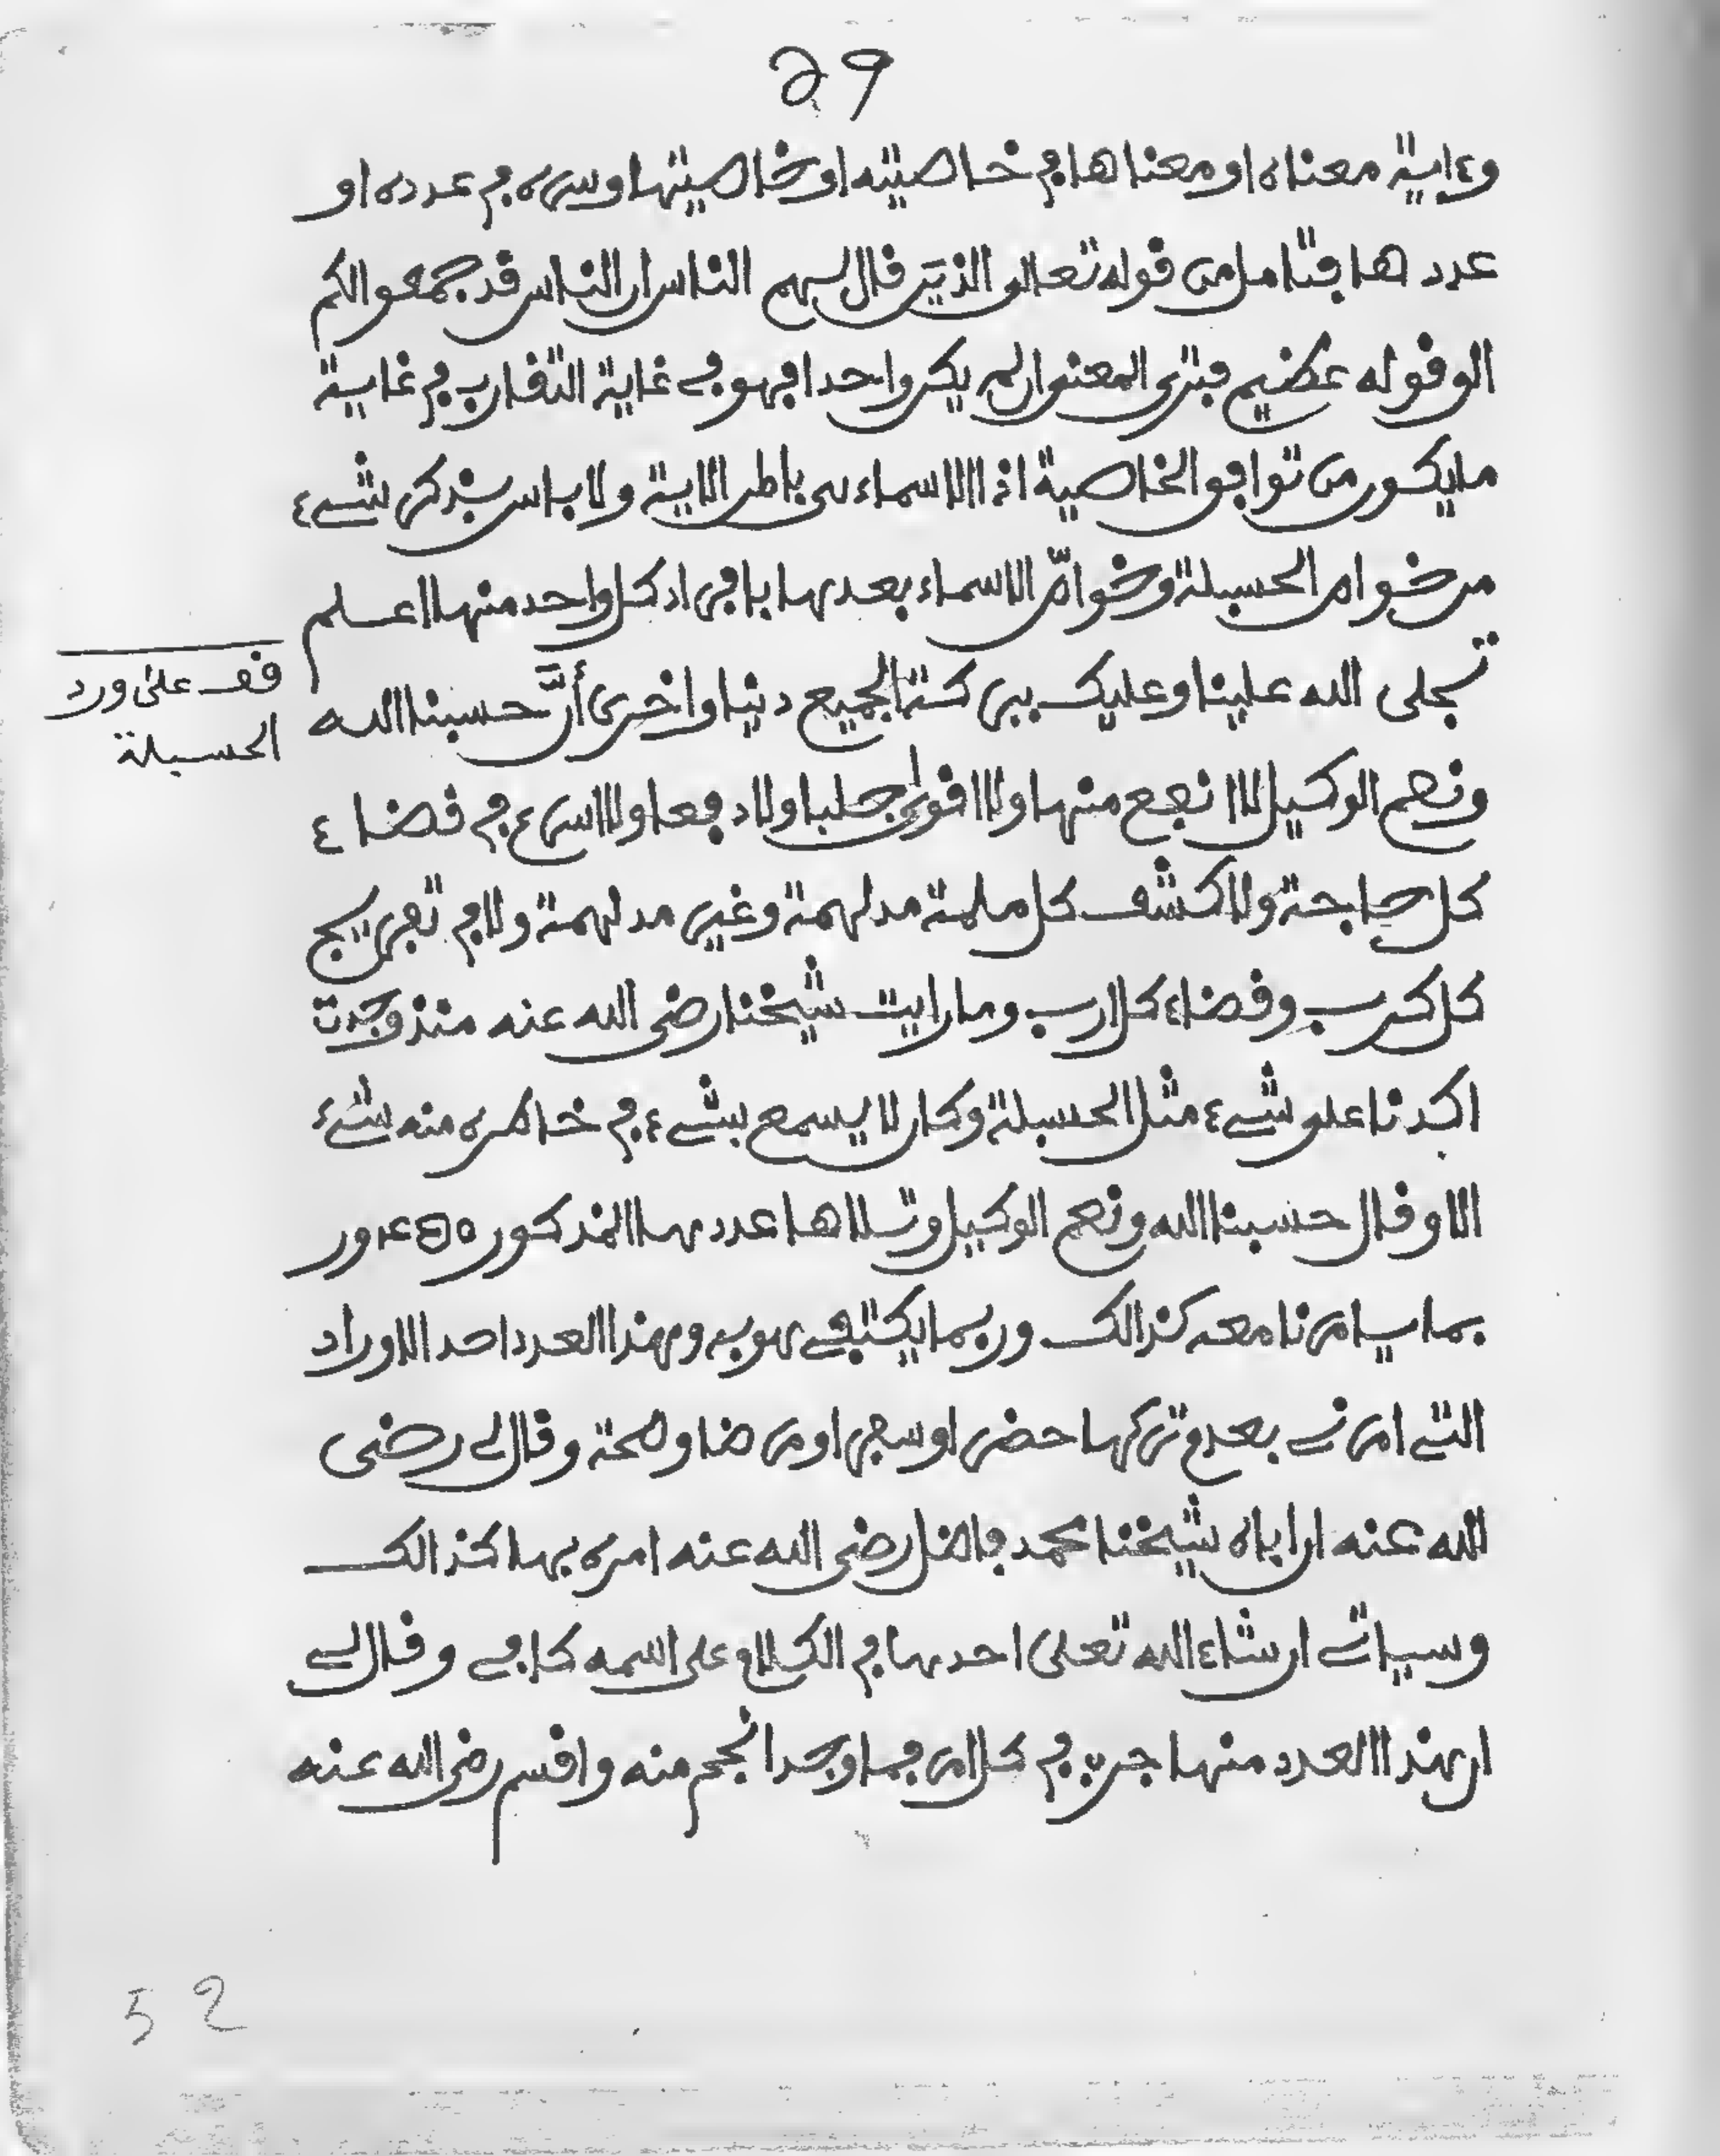 29
وءاية معناه او معناها في خاصيته او خاصيتها وسره في عدده او
عددها فتامل من قوله تعالى الذين قال لهم الناس ان الناس قد جمعوا لكم
الى قوله عظيم فترى المعنى ان لم يكن واحدا فهو في غاية التقارب في غاية
ما يكون من توافق الخاصية اذ الاسماء هي باطن الاية ولا باس بذكر شيء
من خواص الحسبلة وخواص الاسماء بعدها بافراد كل واحد منها اعلم
تجلى الله علينا وعليك ببركة الجميع دنيا واخرى أنَّ حسبنا الله
قف على ورد
الحسبلة
ونعم الوكيل لا انفع منها ولا اقوى جلبا ولا دفعا ولا اسرع في قضاء
كل حاجة ولا كشف كل ملمة مدلهمة وغير مدلهمة ولا في تفريج
كل كرب وقضاء كل ارب وما رايت شيخنا رضي الله عنه منذ وجدت
اكد نا على شيء مثل الحسبلة وكان لا يسمع بشيء في خاطره منه شيء
الا وقال حسبنا الله ونعم الوكيل وتلاها عددها المذكور 450 ور
بما يامرنا معه كذالك وربما يكتفي هو به وهذا العدد احد الاوراد
التي امرني بعدم تركها حضرا وسفرا ومرضا وصحة وقال لي رضي
الله عنه ان اباه شيخنا محمد فاضل رضي الله عنه امره بها كذالك
وسياتي ان شاء الله تعلى احدها في الكلام على اسمه كافي وقال لي
ان هذا العدد منها جرب في كل امر فما وجد انجح منه واقسم رضي الله عنه
52